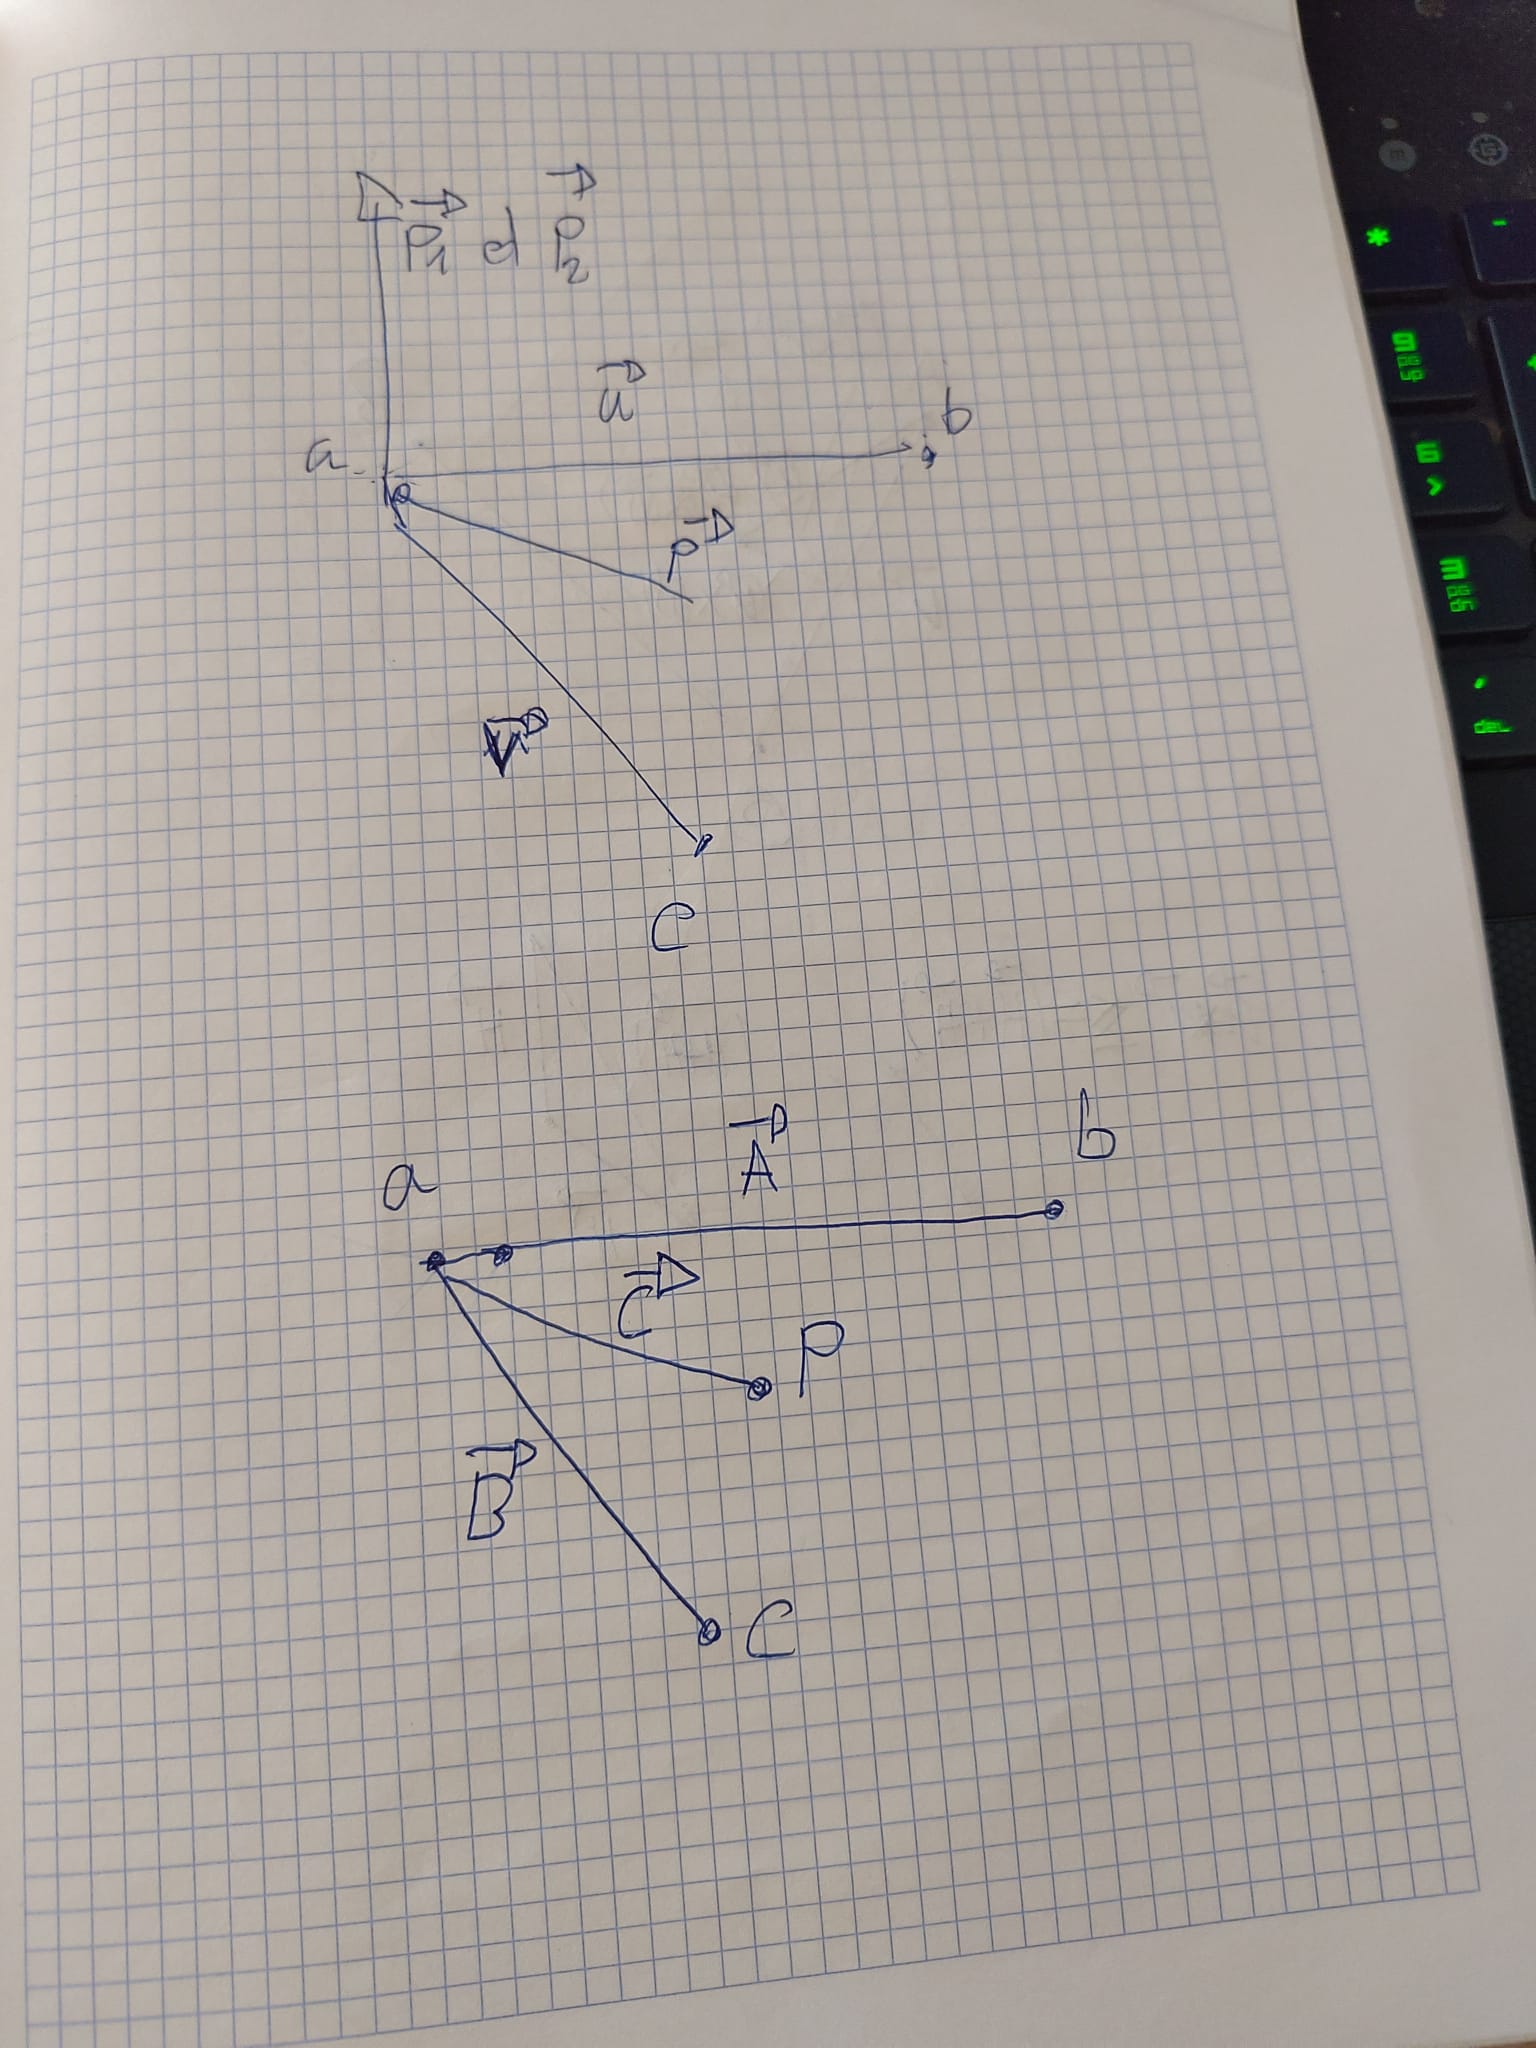 P1 d P2
u
a
b
P
V
C
A
b
a
C
P
B
C
*
-
9
pg
up
6
>
3
pg
dn
del